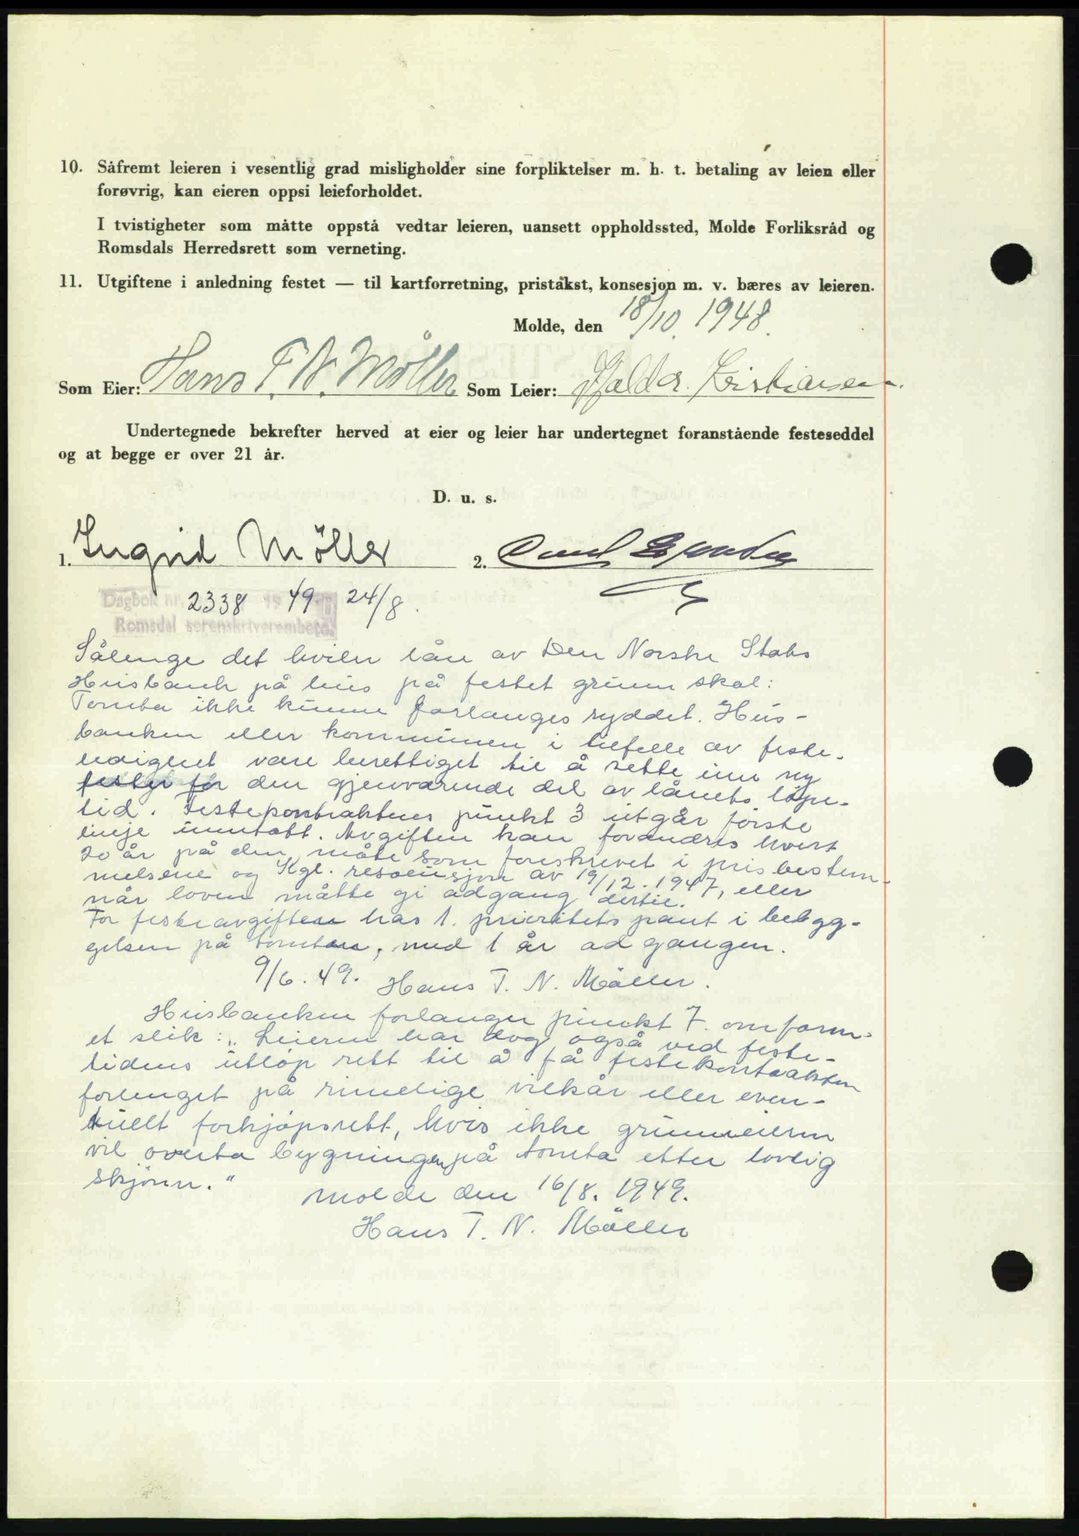 10. Såfremt leieren i vesentlig grad misligholder sine forpliktelser m. h. t. betaling av leien eller
forøvrig, kan eieren oppsi leieforholdet.
I tvistigheter som måtte oppstå vedtar leieren, uansett oppholdssted, Molde Forliksråd og
Romsdals Herredsrett som verneting.
11. Utgiftene i anledning festet — til kartforretning, pristakst, konsesjon m. v. bæres av leieren.
Molde, den 18/10. 1948.
Som Eier: Hans T. N. Möller Som Leier: Kristiansen.
Undertegnede bekrefter herved at eier og leier har undertegnet foranstående festeseddel
og at begge er over 21 år.
D. u. s.
1. Ingrid Möller 2.
Dagbok nr. 2338 1949 24/8.
Romsdal sorenskriverembete
Sålenge det hviler lån av Den Norske Stats
Husbank på hus på festet grunn skal:
Tomta ikke kunne forlanges ryddet. Hus-
banken eller kommunen i tilfelle av feste-
ledighet være berettiget til å sette inn ny
fester for den gjenværende del av lånets løpe-
tid. Festekontraktens punkt 3 utgår första
linje inntatt. Avgiften kan forandres hvert
20 år på den måte som foreskrevet i prisbestem-
melsene og Kgl. resolusjon av 19/12. 1947, eller
når loven måtte gi adgang dertil.
For festeavgiften has 1. prioritets pant i bebygg-
gelsen på tomten, med 1 år ad gangen.
9/6. 49. Hans T. N. Möller.
Husbanken forlanger punkt 7. omform-
et slik: „Leieren har dog også ved feste-
tidens utløp rett til å få festekontrakten
forlenget på rimelige vilkår eller even-
tuelt forkjøpsrett, hvis ikke grunneieren
vil overta bygningen på tomta etter lovlig
skjønn.“
Molde den 16/8. 1949.
Hans T. N. Möller